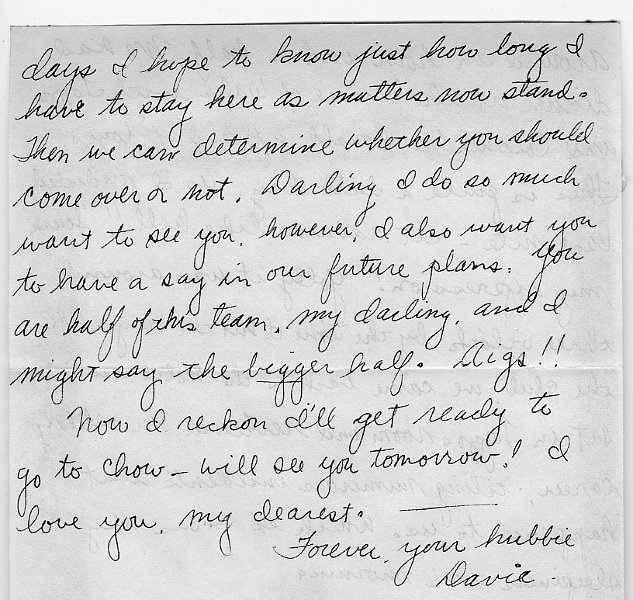 days I hope to know just how long I
have to stay here as matters now stand.
Then we can determine whether you should
come over or not. Darling I do so much
want to see you, however, I also want you
to have a say in our future plans. You
are half of this team, my darling, and I
might say the bigger half. Aigs!!
Now I reckon I'll get ready to
go to chow – will see you tomorrow! I
love you, my dearest.
Forever, your hubbie
Davie